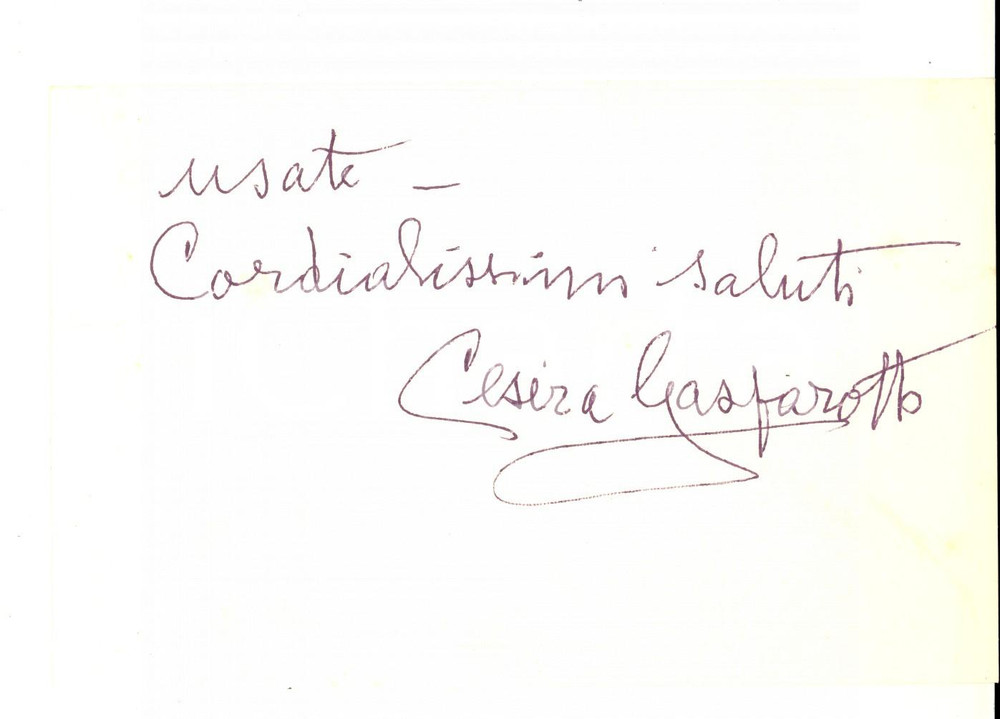 usate –
Cordialissimi saluti
Cesira Gasparotto